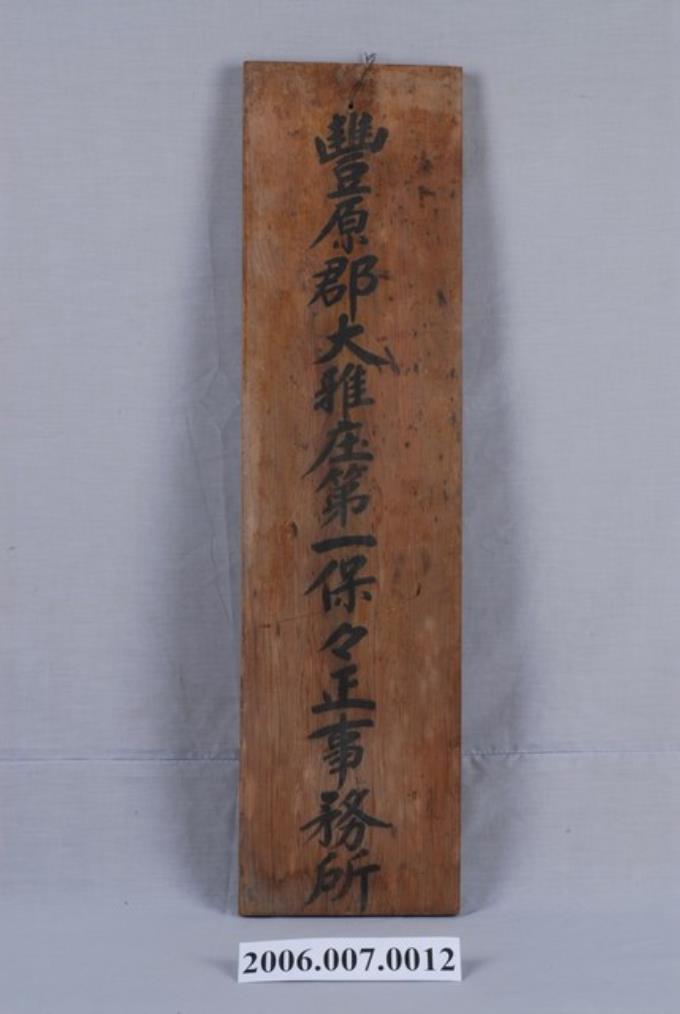 豐原郡大雅庄第一保々正事務所
2006.007.0012